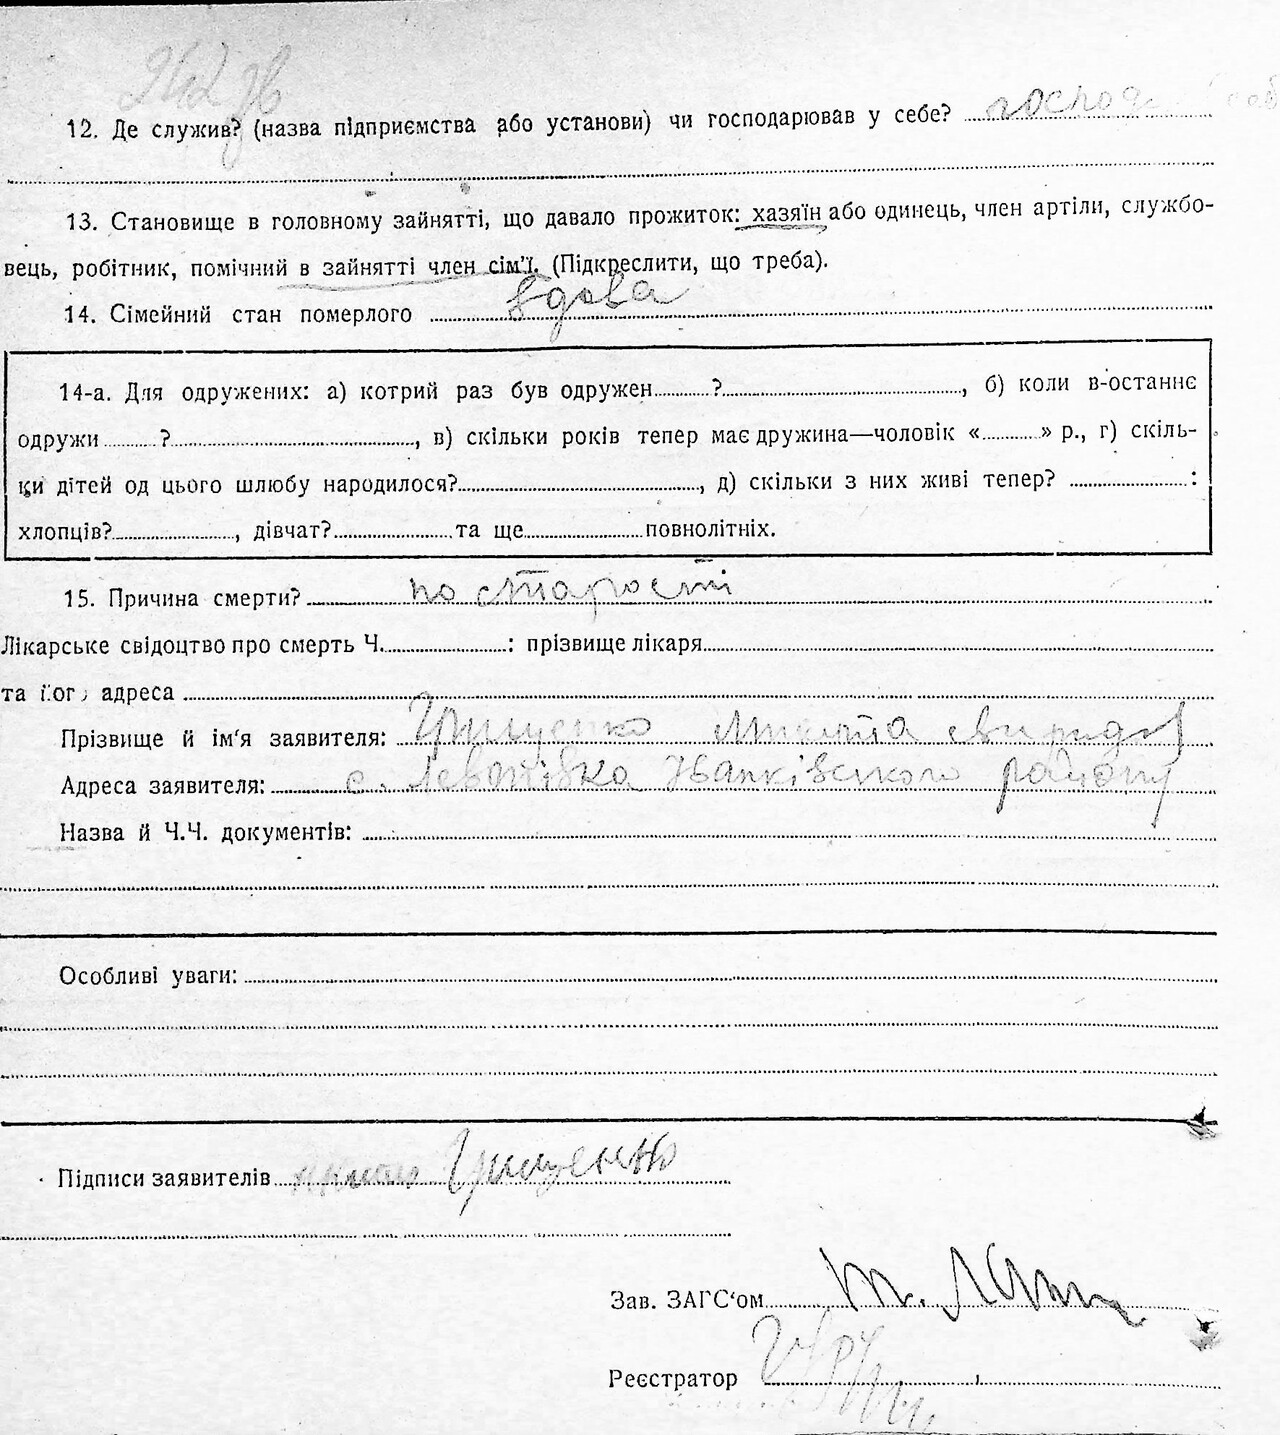 12. Де служив? (назва підприємства або установи) чи господарював у себе?
13. Становище в головному зайнятті, що давало прожиток: хазяїн або одинець, член артіли, службо-
вець, робітник, помічний в зайнятті член сім'ї. (Підкреслити, що треба).
14. Сімейний стан померлого вдова
14-а. Для одружених: а) котрий раз був одружен ? , б) коли в-останнє
одружи ? , в) скільки років тепер має дружина—чоловік « » р., г) скіль-
ки дітей од цього шлюбу народилося? , д) скільки з них живі тепер? :
хлопців? , дівчат? та ще повнолітніх.
15. Причина смерти? по старости
Лікарське свідоцтво про смерть Ч. : прізвище лікаря
та його адреса
Прізвище й ім'я заявителя: Грищенко
Адреса заявителя: с. Іванківського району
Назва й Ч.Ч. документів:
Особливі уваги:
Підписи заявителів Грищенко
Зав. ЗАГС'ом
Реєстратор